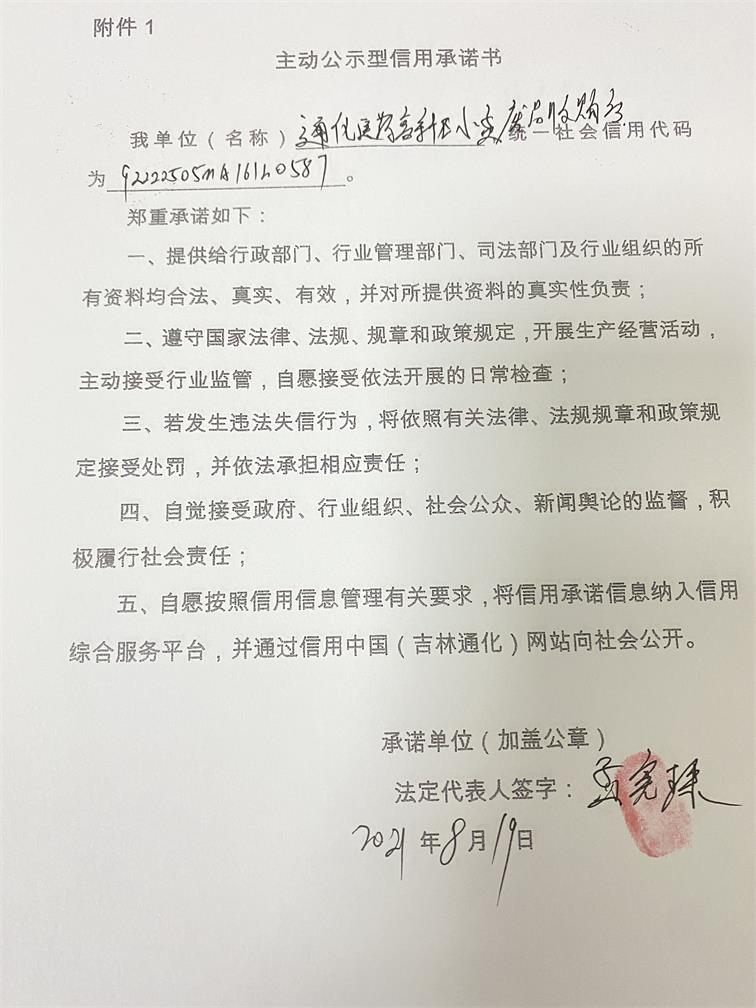 附件 1
主动公示型信用承诺书
我单位（名称）通化医药高新区小孟废品收购部统一社会信用代码
为 92222505MA161L0587 。
郑重承诺如下：
一、提供给行政部门、行业管理部门、司法部门及行业组织的所
有资料均合法、真实、有效，并对所提供资料的真实性负责；
二、遵守国家法律、法规、规章和政策规定，开展生产经营活动，
主动接受行业监管，自愿接受依法开展的日常检查；
三、若发生违法失信行为，将依照有关法律、法规规章和政策规
定接受处罚，并依法承担相应责任；
四、自觉接受政府、行业组织、社会公众、新闻舆论的监督，积
极履行社会责任；
五、自愿按照信用信息管理有关要求，将信用承诺信息纳入信用
综合服务平台，并通过信用中国（吉林通化）网站向社会公开。
承诺单位（加盖公章）
法定代表人签字：孟宪
2021 年 8 月 19 日